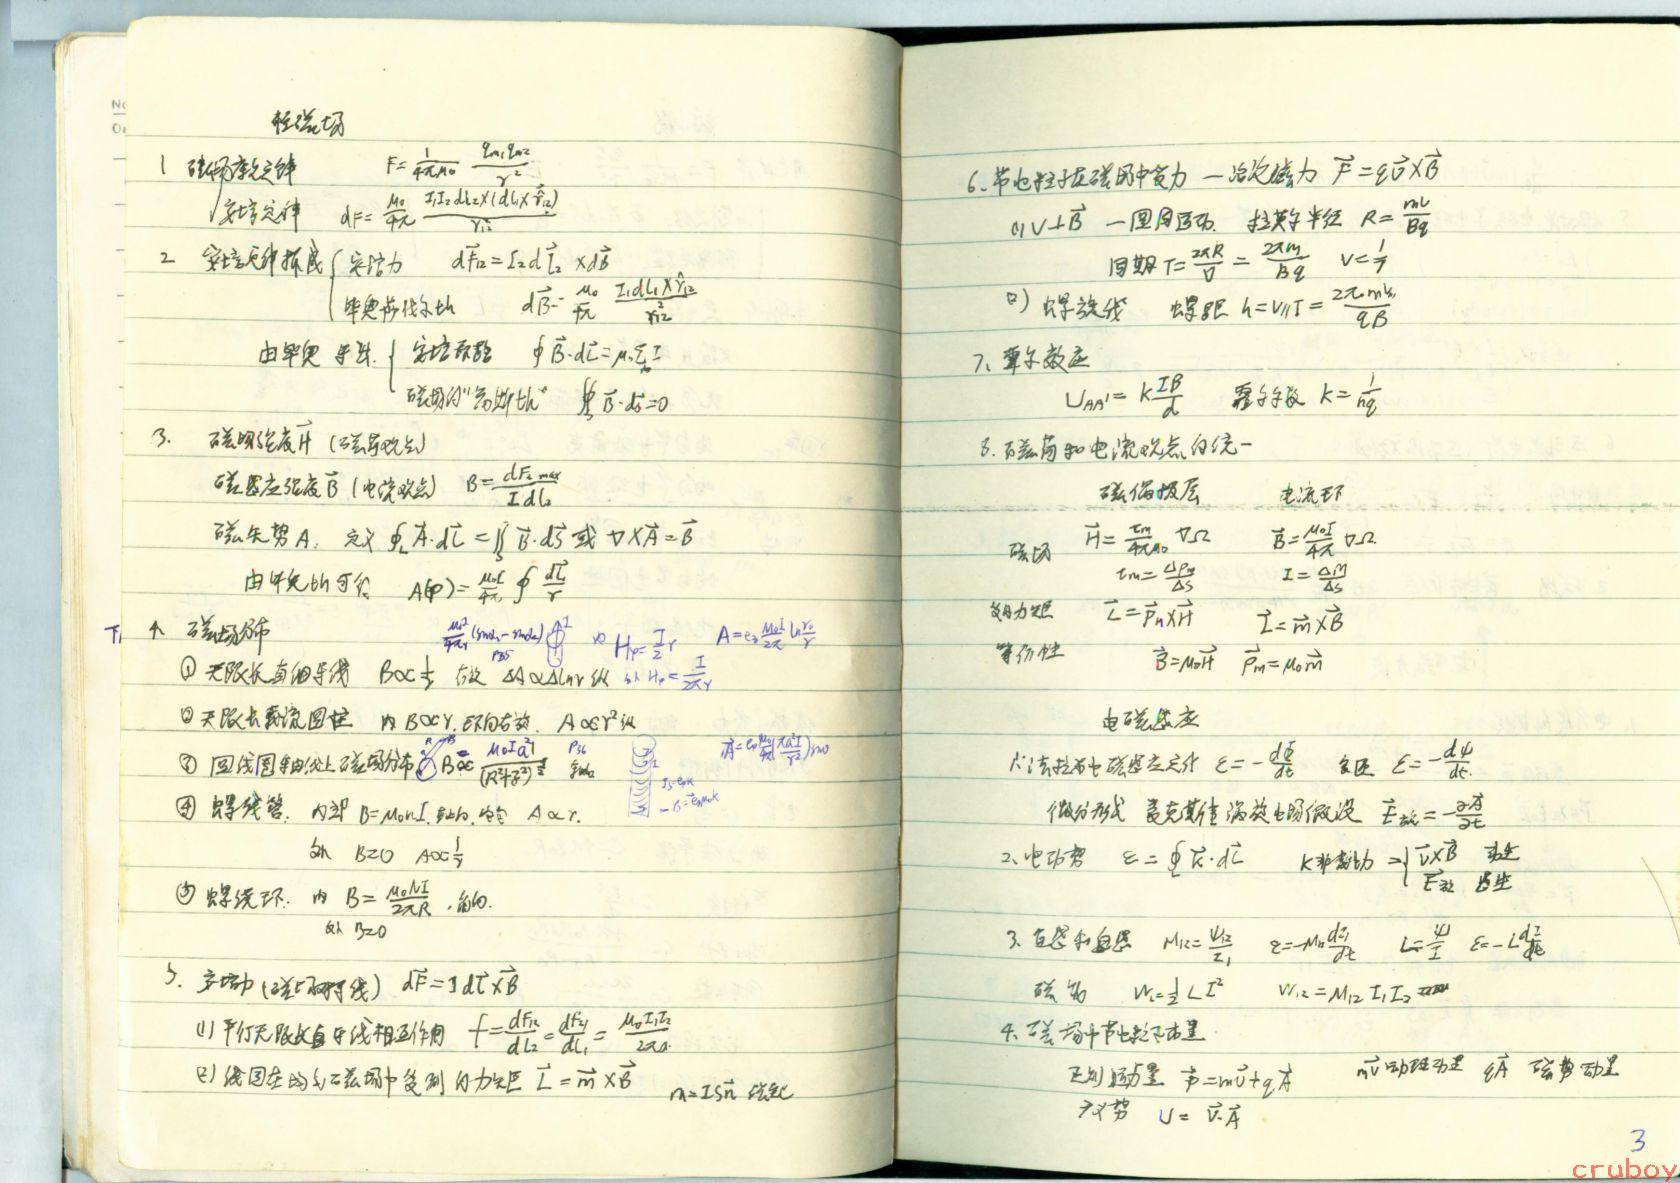 恒磁场
1 磁偶库仑定律 F=\frac{1}{4πμ0} \frac{q_{m1}q_{m2}}{r^2}
安培定律 dF=\frac{μ0}{4π} \frac{I1I2dL2×(dL1×\hat{r}12)}{r12^2}
2 安培定律拆成 { 安培力 d\vec{F}12=I2d\vec{L}2×d\vec{B}
毕奥萨伐尔th d\vec{B}=\frac{μ0}{4π} \frac{I1dL1×\hat{r}12}{r12^2}
由毕奥 导出 { 安培环路 ∮\vec{B}·d\vec{L}=μ0ΣI
磁场的"高斯th" ∯\vec{B}·d\vec{s}=0
3. 磁场强度\vec{H} (磁荷观点)
磁感应强度\vec{B} (电流观点) B=\frac{dF2 max}{I dL2}
磁矢势A: 定义 ∮\vec{A}·d\vec{L}=∬\vec{B}·d\vec{s} 或 ∇×\vec{A}=\vec{B}
由毕奥th可得 A(p)=\frac{μ0I}{4π}∮\frac{d\vec{L}}{r}
4. 磁场分布 \frac{μ0I}{4πr}(sinα1-sinα2) 内 Hφ=\frac{I}{2}r A=e_z\frac{μ0I}{2π}ln\frac{r0}{r}
① 无限长直细导线 B∝\frac{1}{r} 右旋 ΔA∝Δlnr 纵 外 Hφ=\frac{I}{2πr}
② 无限长载流圆柱 内 B∝r, 环向右旋. A∝r^2 纵
③ 圆线圈轴线上磁场分布 B∝=\frac{μ0Ia^2}{(R^2+z^2)^{\frac{3}{2}}} P36
④ 螺线管. 内部 B=μ0nI, A∝r.
外 B=0 A∝\frac{1}{r}
⑤ 螺绕环. 内 B=\frac{μ0NI}{2πR}, 角向.
外 B=0
5. 安培力 (磁场对导线) d\vec{F}=Id\vec{L}×\vec{B}
(1) 平行无限长直导线相互作用 f=\frac{dF12}{dL2}=\frac{dF21}{dL1}=\frac{μ0I1I2}{2πa}
(2) 线圈在均匀磁场中受到的力矩 \vec{L}=\vec{m}×\vec{B} m=IS\vec{n} 磁矩
6. 带电粒子在磁场中受力 — 洛伦兹力 \vec{F}=q\vec{v}×\vec{B}
(1) v⊥\vec{B} — 圆周运动. 拉莫尔半径 R=\frac{mv}{Bq}
周期 T=\frac{2πR}{v}=\frac{2πm}{Bq} ν=\frac{1}{T}
(2) 螺旋线 螺距 h=v∥T=\frac{2πmv∥}{qB}
7. 霍尔效应
U_{AA'}=K\frac{IB}{d} 霍尔系数 K=\frac{1}{nq}
8. 磁荷和电流观点的统一
磁偶极层 电流环
磁场 \vec{H}=\frac{τm}{4πμ0}∇Ω \vec{B}=\frac{μ0I}{4π}∇Ω
τm=\frac{ΔPm}{Δs} I=\frac{Δm}{Δs}
受力矩 \vec{L}=\vec{P}m×\vec{H} \vec{L}=\vec{m}×\vec{B}
等价性 \vec{B}=μ0\vec{H} \vec{P}m=μ0\vec{m}
电磁感应
1. 法拉第电磁感应定律 ε=-\frac{dΦ}{dt} 多匝 ε=-\frac{dψ}{dt}
微分形式 麦克斯韦涡旋电场假设 \vec{E}旋=-\frac{∂\vec{A}}{∂t}
2. 电动势 ε=∮\vec{K}·d\vec{L} K非静电力={ \vec{v}×\vec{B} 动生
\vec{E}旋 感生
3. 互感和自感 M12=\frac{ψ12}{I1} ε=-M12\frac{dI1}{dt} L=\frac{ψ}{I} ε=-L\frac{dI}{dt}
磁能 W=\frac{1}{2}LI^2 W12=M12I1I2
4. 磁场中带电粒子动量
正则动量 \vec{P}=m\vec{v}+q\vec{A} m\vec{v}动理动量 q\vec{A} 磁势动量
广义势 U=\vec{v}·\vec{A}
3
cruboy